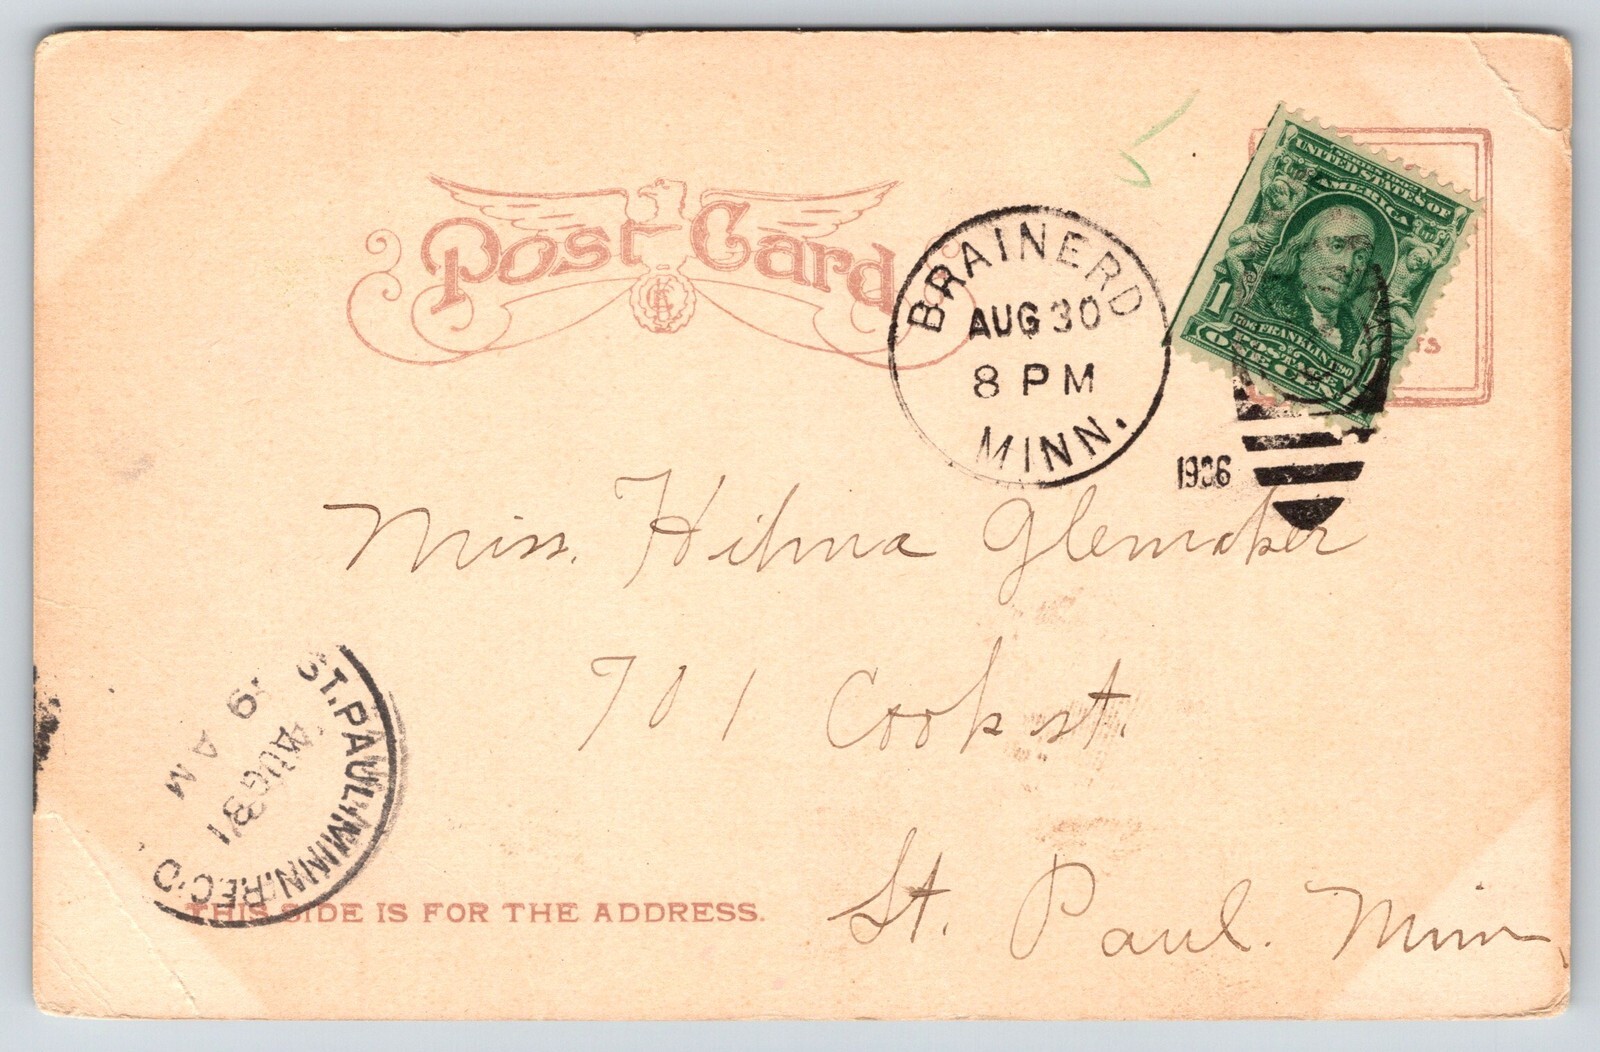 Post Card
BRAINERD
AUG 30
8 PM
MINN.
1906
SERIES 1902
UNITED STATES OF
AMERICA
1706 FRANKLIN 1790
POSTAGE
1 ONE CENT 1
TS
Miss. Hilma Glemaker
701 Cook st.
St. Paul. Minn
ST. PAUL, MINN. REC'D.
AUG 31
9
AM
THIS SIDE IS FOR THE ADDRESS.